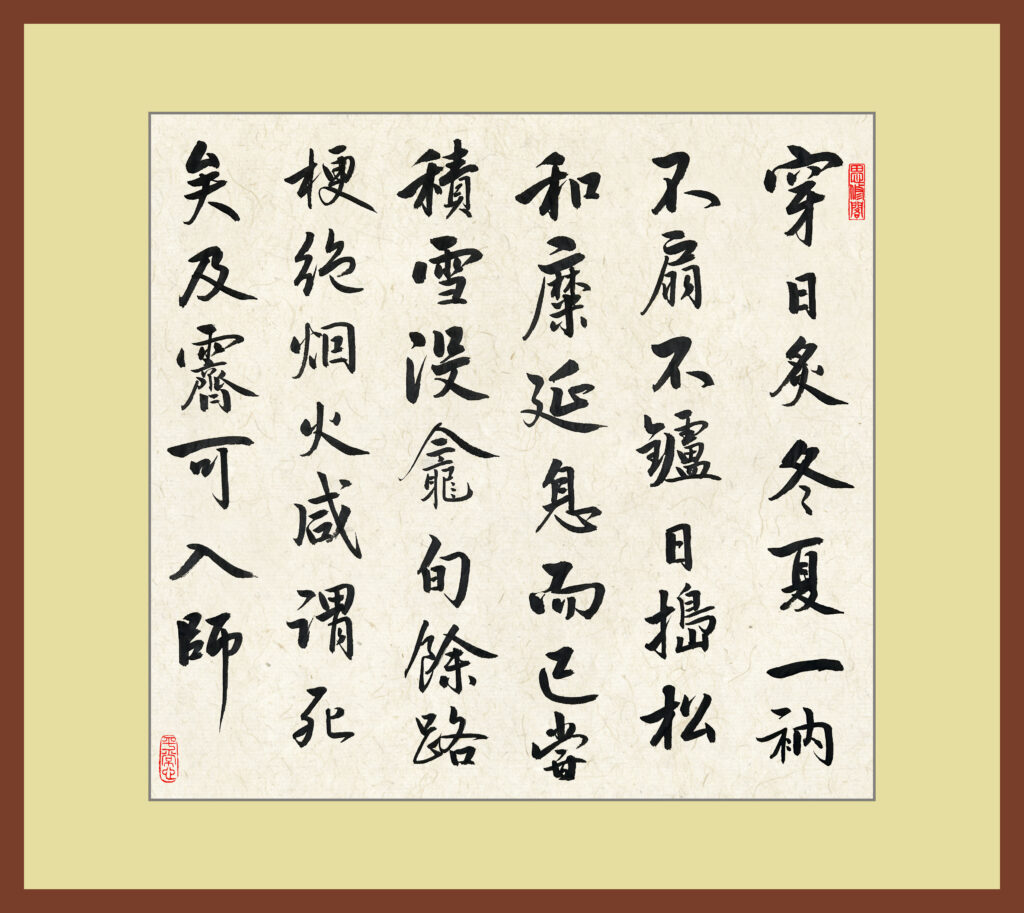 思修閣
穿日炙冬夏一衲
不扇不鑪日搗松
和糜延息而已嘗
積雪沒龕旬餘路
梗絶烟火咸謂死
矣及霽可入師
平常心